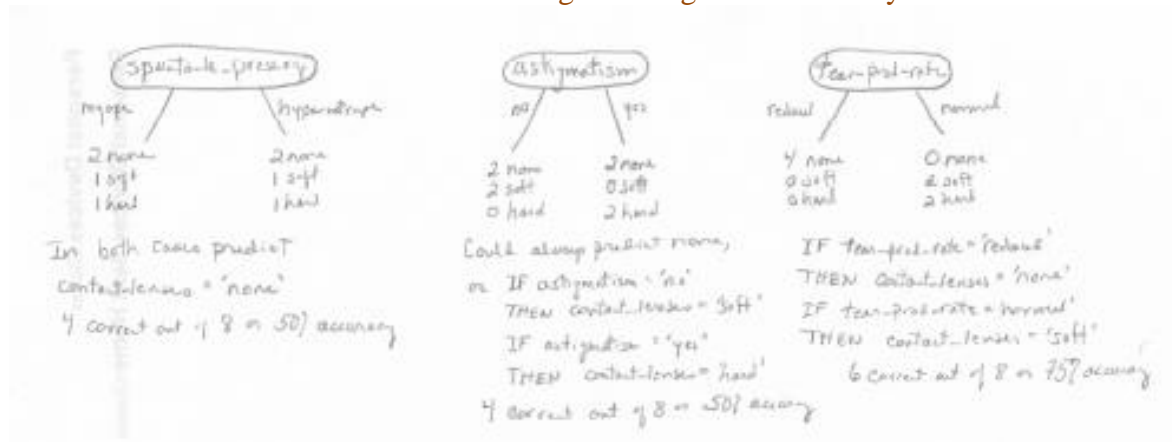 spectacle-prescrip
myope
hypermetrope
2 none
1 soft
1 hard
2 none
1 soft
1 hard
In both cases predict
contact-lenses = 'none'
4 correct out of 8 or 50% accuracy
astigmatism
no
yes
2 none
2 soft
0 hard
2 none
0 soft
2 hard
Could always predict none,
or IF astigmatism = 'no'
THEN contact-lenses = 'soft'
IF astigmatism = 'yes'
THEN contact-lenses = 'hard'
4 correct out of 8 or 50% accuracy
tear-prod-rate
reduced
normal
4 none
0 soft
0 hard
0 none
2 soft
2 hard
IF tear-prod-rate = 'reduced'
THEN contact-lenses = 'none'
IF tear-prod-rate = normal'
THEN contact-lenses = 'soft'
6 correct out of 8 or 75% accuracy